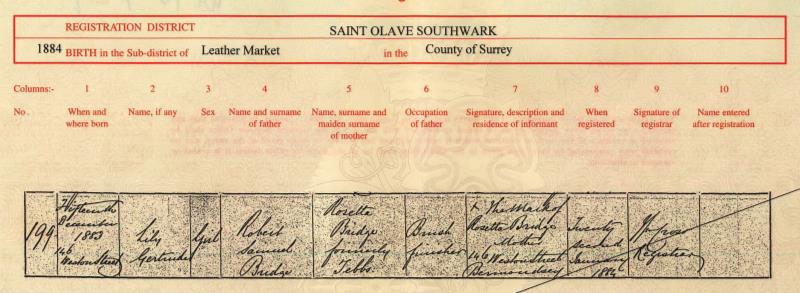 REGISTRATION DISTRICT
SAINT OLAVE SOUTHWARK
1884 BIRTH in the Sub-district of Leather Market in the County of Surrey
Columns:- 1 2 3 4 5 6 7 8 9 10
No. When and where born Name, if any Sex Name and surname of father Name, surname and maiden surname of mother Occupation of father Signature, description and residence of informant When registered Signature of registrar Name entered after registration
199
Fifteenth
December
1883
146
Weston Street
Lily
Gertrude
Girl
Robert
Samuel
Bridge
Rosetta
Bridge
formerly
Tebbs
Brush
finisher
X The Mark of
Rosetta Bridge
Mother
146 Weston Street
Bermondsey
Twenty
second
January
1884
Registrar